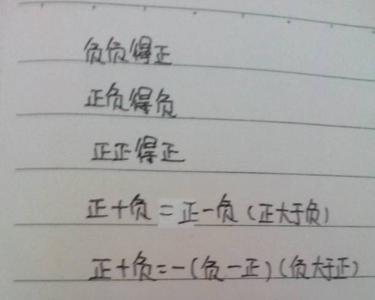 负负得正
正负得负
正正得正
正+负=正-负(正大于负)
正+负=-(负-正)(负大于正)